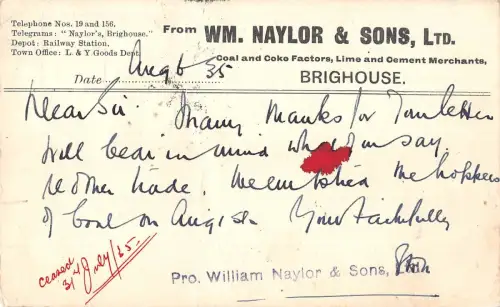 Telephone Nos. 19 and 156.
Telegrams: "Naylor's, Brighouse."
Depot: Railway Station.
Town Office: L. & Y. Goods Dept.
From WM. NAYLOR & SONS, LTD.
Coal and Coke Factors, Lime and Cement Merchants,
BRIGHOUSE.
Date Aug 6 35
Dear Sir. Many thanks for your letter
will bear in mind what you say
re other trade. the hoppers
of coal on Aug 1st. Yours faithfully
ceased
31st July/35.
Pro. William Naylor & Sons,